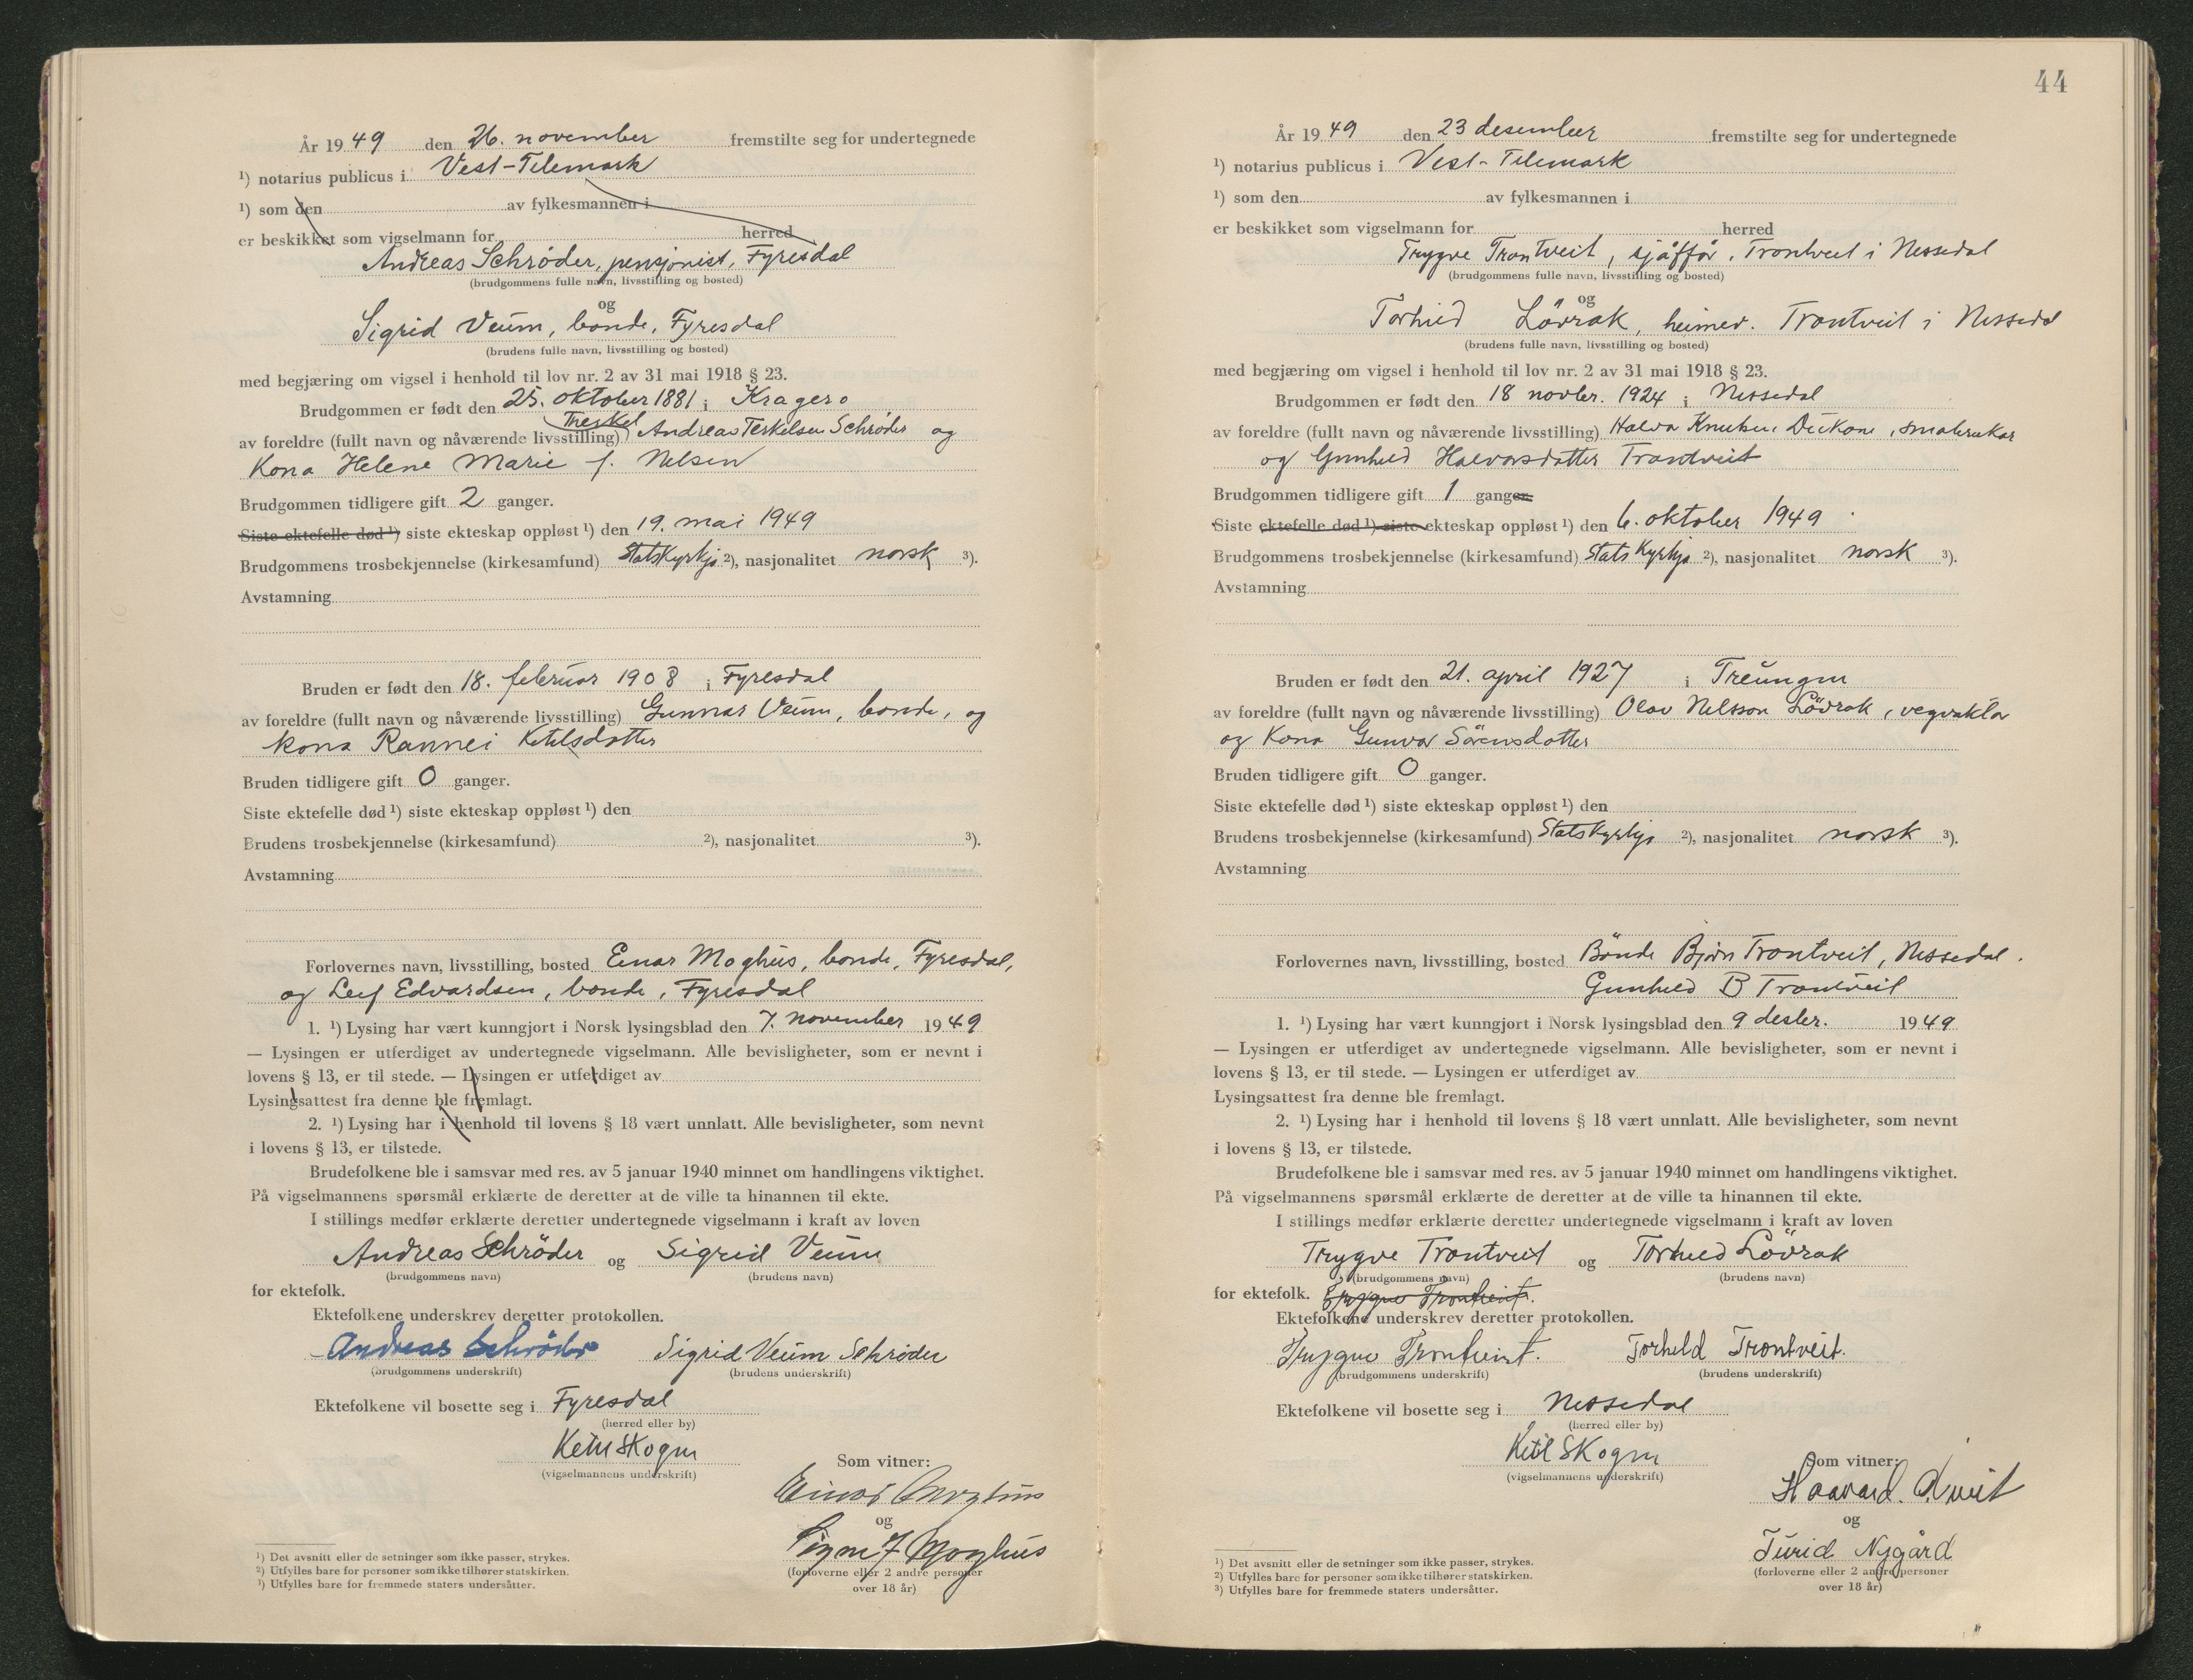 År 1949 den 26. november fremstilte seg for undertegnede
¹) notarius publicus i Vest-Telemark
¹) som den av fylkesmannen i
er beskikket som vigselmann for herred
Andreas Schrøder, pensjonist, Fyresdal
(brudgommens fulle navn, livsstilling og bosted)
og
Sigrid Veum, bonde, Fyresdal
(brudens fulle navn, livsstilling og bosted)
med begjæring om vigsel i henhold til lov nr. 2 av 31 mai 1918 § 23.
Brudgommen er født den 25. oktober 1881 i Kragerø
av foreldre (fullt navn og nåværende livsstilling) Andreas Terkelsen Schrøder og
Kona Helene Marie f. Nelsen
Brudgommen tidligere gift 2 ganger.
Siste ektefelle død ¹) siste ekteskap oppløst ¹) den 19. mai 1949
Brudgommens trosbekjennelse (kirkesamfund) Statskyrkja ²), nasjonalitet norsk ³).
Avstamning
Bruden er født den 18. februar 1908 i Fyresdal
av foreldre (fullt navn og nåværende livsstilling) Gunnar Veum, bonde, og
kona Rannei Ketilsdotter
Bruden tidligere gift 0 ganger.
Siste ektefelle død ¹) siste ekteskap oppløst ¹) den
Brudens trosbekjennelse (kirkesamfund) ²), nasjonalitet ³).
Avstamning
Forlovernes navn, livsstilling, bosted Einar Moghus, bonde, Fyresdal,
og Leif Edvardsen, bonde, Fyresdal
1. ¹) Lysing har vært kunngjort i Norsk lysingsblad den 7. november 1949
— Lysingen er utferdiget av undertegnede vigselmann. Alle bevisligheter, som er nevnt i
lovens § 13, er til stede. — Lysingen er utferdiget av
Lysingsattest fra denne ble fremlagt.
2. ¹) Lysing har i henhold til lovens § 18 vært unnlatt. Alle bevisligheter, som nevnt
i lovens § 13, er tilstede.
Brudefolkene ble i samsvar med res. av 5 januar 1940 minnet om handlingens viktighet.
På vigselmannens spørsmål erklærte de deretter at de ville ta hinannen til ekte.
I stillings medfør erklærte deretter undertegnede vigselmann i kraft av loven
Andreas Schröder og Sigrid Veum
(brudgommens navn) (brudens navn)
for ektefolk.
Ektefolkene underskrev deretter protokollen.
Andreas Schröder Sigrid Veum Schrøder
(brudgommens underskrift) (brudens underskrift)
Ektefolkene vil bosette seg i Fyresdal
(herred eller by)
Ketil Skogen
(vigselmannens underskrift)
Som vitner:
Einar Moghus
og
Moghus
(forloverne eller 2 andre personer
over 18 år)
¹) Det avsnitt eller de setninger som ikke passer, strykes.
²) Utfylles bare for personer som ikke tilhører statskirken.
³) Utfylles bare for fremmede staters undersåtter.
44
År 1949 den 23 desember fremstilte seg for undertegnede
¹) notarius publicus i Vest-Telemark
¹) som den av fylkesmannen i
er beskikket som vigselmann for herred
Trygve Trontveit, sjåffør, Trontveit i Nissedal
(brudgommens fulle navn, livsstilling og bosted)
og
Torhild Lövrak, heimev. Trontveit i Nissedal
(brudens fulle navn, livsstilling og bosted)
med begjæring om vigsel i henhold til lov nr. 2 av 31 mai 1918 § 23.
Brudgommen er født den 18 novbr. 1924 i Nissedal
av foreldre (fullt navn og nåværende livsstilling) Knutsen, småbrukar
og Gunhild Halvorsdotter Trontveit
Brudgommen tidligere gift 1 ganger
Siste ektefelle død ¹) siste ekteskap oppløst ¹) den 6. oktober 1949.
Brudgommens trosbekjennelse (kirkesamfund) Statskyrkja ²), nasjonalitet norsk ³).
Avstamning
Bruden er født den 21. april 1927 i Treungen
av foreldre (fullt navn og nåværende livsstilling) Olav Nelsson Lövrak, vegvaktar
og Kona Gunvor Sörensdotter
Bruden tidligere gift 0 ganger.
Siste ektefelle død ¹) siste ekteskap oppløst ¹) den
Brudens trosbekjennelse (kirkesamfund) Statskyrkja ²), nasjonalitet norsk ³).
Avstamning
Forlovernes navn, livsstilling, bosted Bonde Bjørn Trontveit, Nissedal.
Gunhild B Trontveit
1. ¹) Lysing har vært kunngjort i Norsk lysingsblad den 9 desbr. 1949
— Lysingen er utferdiget av undertegnede vigselmann. Alle bevisligheter, som er nevnt i
lovens § 13, er til stede. — Lysingen er utferdiget av
Lysingsattest fra denne ble fremlagt.
2. ¹) Lysing har i henhold til lovens § 18 vært unnlatt. Alle bevisligheter, som nevnt
i lovens § 13, er tilstede.
Brudefolkene ble i samsvar med res. av 5 januar 1940 minnet om handlingens viktighet.
På vigselmannens spørsmål erklærte de deretter at de ville ta hinannen til ekte.
I stillings medfør erklærte deretter undertegnede vigselmann i kraft av loven
Trygve Trontveit og Torhild Lövrak
(brudgommens navn) (brudens navn)
for ektefolk. Trygve Trontveit.
Ektefolkene underskrev deretter protokollen.
Trygve Trontveit. Torhild Trontveit.
(brudgommens underskrift) (brudens underskrift)
Ektefolkene vil bosette seg i Nissedal
(herred eller by)
Ketil Skogen
(vigselmannens underskrift)
Som vitner:
Haavard
og
Turid Nygård
(forloverne eller 2 andre personer
over 18 år)
¹) Det avsnitt eller de setninger som ikke passer, strykes.
²) Utfylles bare for personer som ikke tilhører statskirken.
³) Utfylles bare for fremmede staters undersåtter.